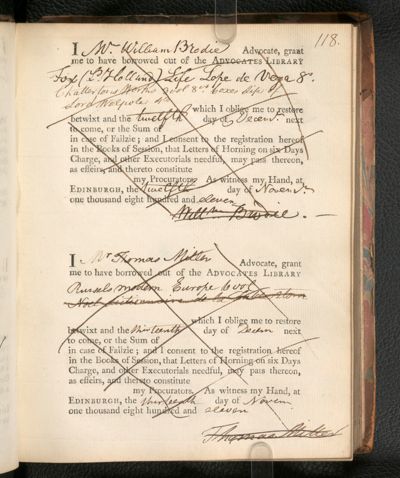 118.
I Mr William Brodie Advocate, grant
me to have borrowed out of the ADVOCATES LIBRARY
Fox (L. Holland) Life Lope de Vega 8o.
Chatterton's Works 3 vol 8vo
Lord Walpole's
which I oblige me to restore
betwixt and the twelfth day of Decemr. next
to come, or the Sum of
in case of Failzie; and I consent to the registration hereof
in the Books of Session, that Letters of Horning on six Days
Charge, and other Executorials needful, may pass thereon,
as effeirs, and thereto constitute
my Procurators. As witness my Hand, at
EDINBURGH, the twelfth day of Novemr.
one thousand eight hundred and eleven
Willm Brodie.
I Mr Thomas Advocate, grant
me to have borrowed out of the ADVOCATES LIBRARY
Russels modern Europe 6 vols
which I oblige me to restore
betwixt and the thirteenth day of Decem next
to come, or the Sum of
in case of Failzie; and I consent to the registration hereof
in the Books of Session, that Letters of Horning on six Days
Charge, and other Executorials needful, may pass thereon,
as effeirs, and thereto constitute
my Procurators. As witness my Hand, at
EDINBURGH, the thirteenth day of Novem.
one thousand eight hundred and eleven
Thomas